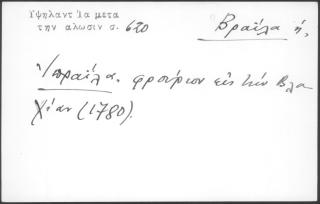 Υψηλαντ Τα μετα
την αλωσιν σ. 620
Βραΐλα ἡ,
Ἰμπραΐλα. φρούριον εἰς τὴν Βλα
χίαν (1780).